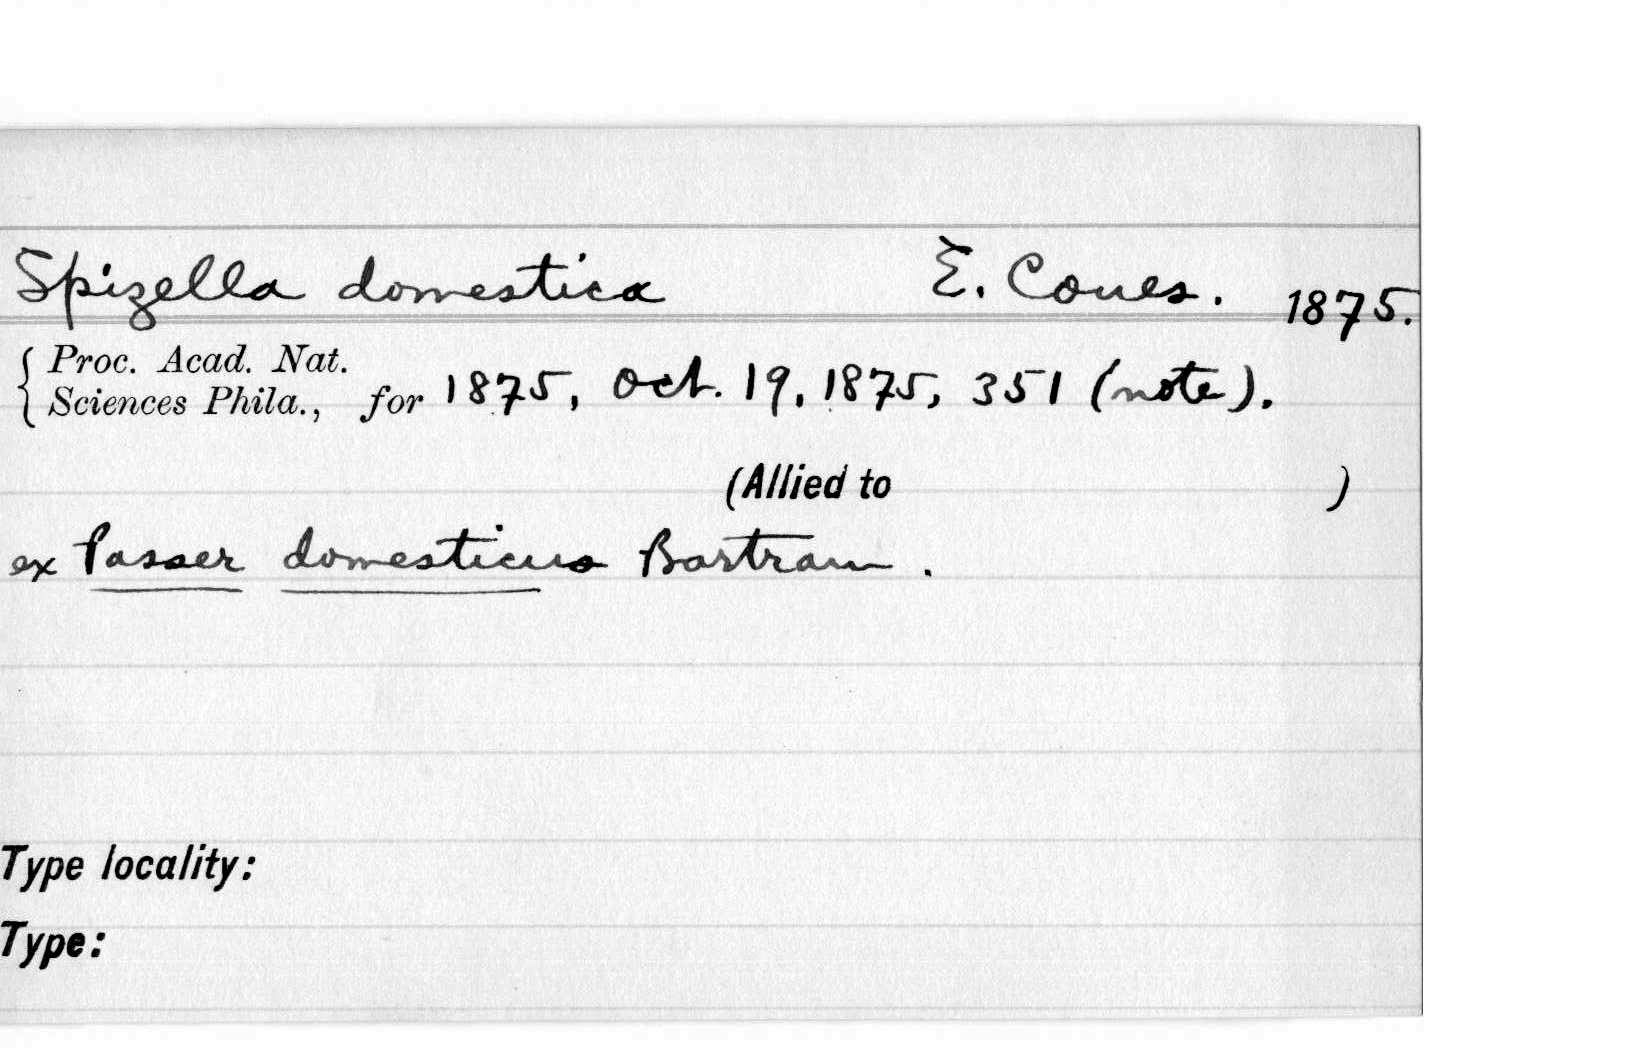 Spizella domestica E. Coues. 1875.
{ Proc. Acad. Nat.
Sciences Phila., for 1875, Oct. 19, 1875, 351 (note).
(Allied to )
ex Passer domesticus Bartram.
Type locality:
Type: